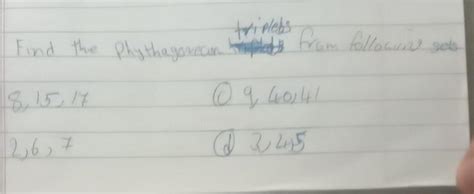 triplets
Find the Phythagorean from following sets
8, 15, 17 (c) 9, 40, 41
2, 6, 7 (d) 3, 4, 5